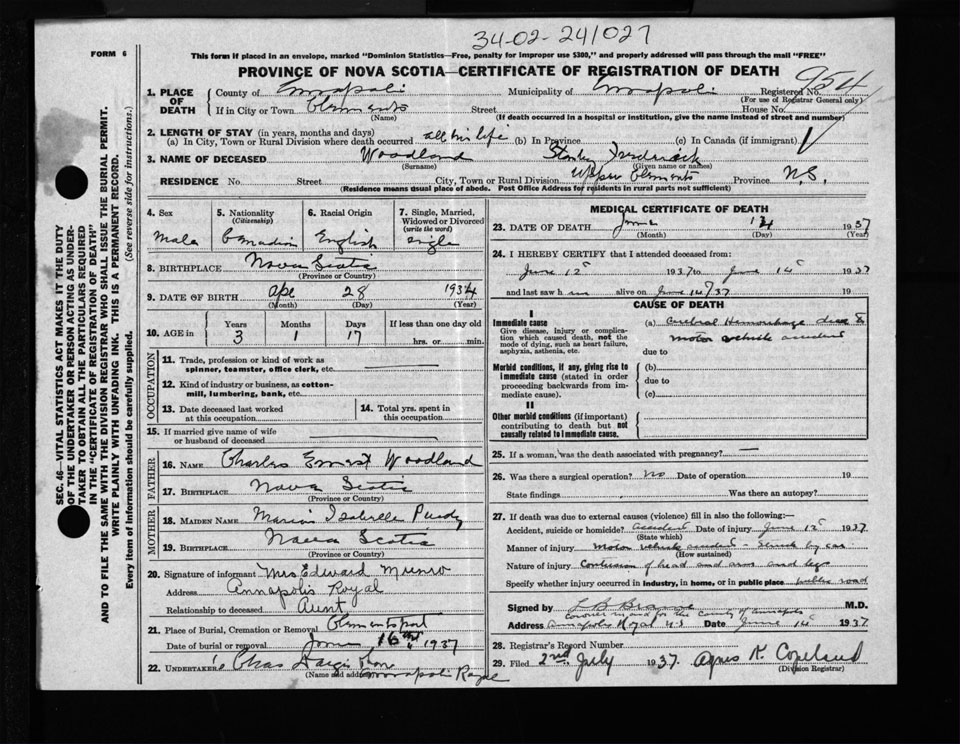 34-02-241027
FORM 6
This form if placed in an envelope, marked "Dominion Statistics—Free, penalty for improper use $300," and properly addressed will pass through the mail "FREE"
PROVINCE OF NOVA SCOTIA—CERTIFICATE OF REGISTRATION OF DEATH
954
1. PLACE OF DEATH
County of Annapolis Municipality of Annapolis Registered No.
(For use of Registrar General only)
If in City or Town Clements Street House No.
(Name) (If death occurred in a hospital or institution, give the name instead of street and number)
2. LENGTH OF STAY (in years, months and days)
(a) In City, Town or Rural Division where death occurred all his life (b) In Province (c) In Canada (if immigrant)
3. NAME OF DECEASED Woodland Stanley Frederick
(Surname) (Given name or names)
RESIDENCE No. Street City, Town or Rural Division Upper Clements Province N.S.
(Residence means usual place of abode. Post Office Address for residents in rural parts not sufficient)
4. Sex
Male
5. Nationality
(Citizenship)
Canadian
6. Racial Origin
English
7. Single, Married, Widowed or Divorced
(write the word)
Single
8. BIRTHPLACE Nova Scotia
(Province or Country)
9. DATE OF BIRTH Ape 28 1934
(Month) (Day) (Year)
10. AGE in
Years Months Days If less than one day old
3 1 17 hrs. or min.
OCCUPATION
11. Trade, profession or kind of work as
spinner, teamster, office clerk, etc.
12. Kind of industry or business, as cotton-
mill, lumbering, bank, etc.
13. Date deceased last worked
at this occupation
14. Total yrs. spent in
this occupation
15. If married give name of wife
or husband of deceased
FATHER
16. NAME Charles Ernest Woodland
17. BIRTHPLACE Nova Scotia
(Province or Country)
MOTHER
18. MAIDEN NAME Marion Isabelle Purdy
19. BIRTHPLACE Nova Scotia
(Province or Country)
20. Signature of informant Mrs Edward Munro
Address Annapolis Royal
Relationship to deceased Aunt
21. Place of Burial, Cremation or Removal Clementsport
Date of burial or removal June 16th 1937
22. UNDERTAKER Chas
(Name and address) Annapolis Royal
MEDICAL CERTIFICATE OF DEATH
23. DATE OF DEATH June 14 1937
(Month) (Day) (Year)
24. I HEREBY CERTIFY that I attended deceased from:
June 12 1937 to June 14 1937
and last saw him alive on June 14/37 19
CAUSE OF DEATH
I
Immediate cause
Give disease, injury or complication which caused death, not the mode of dying, such as heart failure, asphyxia, asthenia, etc.
(a) Cerebral Hemorrhage due to
motor vehicle accident
due to
Morbid conditions, if any, giving rise to immediate cause (stated in order proceeding backwards from immediate cause).
(b)
due to
(c)
II
Other morbid conditions (if important) contributing to death but not causally related to immediate cause.
25. If a woman, was the death associated with pregnancy? —
26. Was there a surgical operation? No Date of operation 19
State findings Was there an autopsy?
27. If death was due to external causes (violence) fill in also the following:—
Accident, suicide or homicide? Accident Date of injury June 12 1937
(State which)
Manner of injury Motor vehicle accident - struck by car
(How sustained)
Nature of injury Contusion of head and arm and legs
Specify whether injury occurred in industry, in home, or in public place public road
Signed by L B M.D.
Coroner in and for the County of Annapolis
Address Annapolis Royal N.S Date June 14 1937
28. Registrar's Record Number
29. Filed 2nd July 1937. Agnes K. Copeland
(Division Registrar)
SEC. 46—VITAL STATISTICS ACT MAKES IT THE DUTY
OF THE UNDERTAKER OR PERSON ACTING AS UNDER-
TAKER TO OBTAIN ALL THE PARTICULARS REQUIRED
IN THE "CERTIFICATE OF REGISTRATION OF DEATH"
AND TO FILE THE SAME WITH THE DIVISION REGISTRAR WHO SHALL ISSUE THE BURIAL PERMIT.
WRITE PLAINLY WITH UNFADING INK. THIS IS A PERMANENT RECORD.
Every item of information should be carefully supplied. (See reverse side for instructions.)